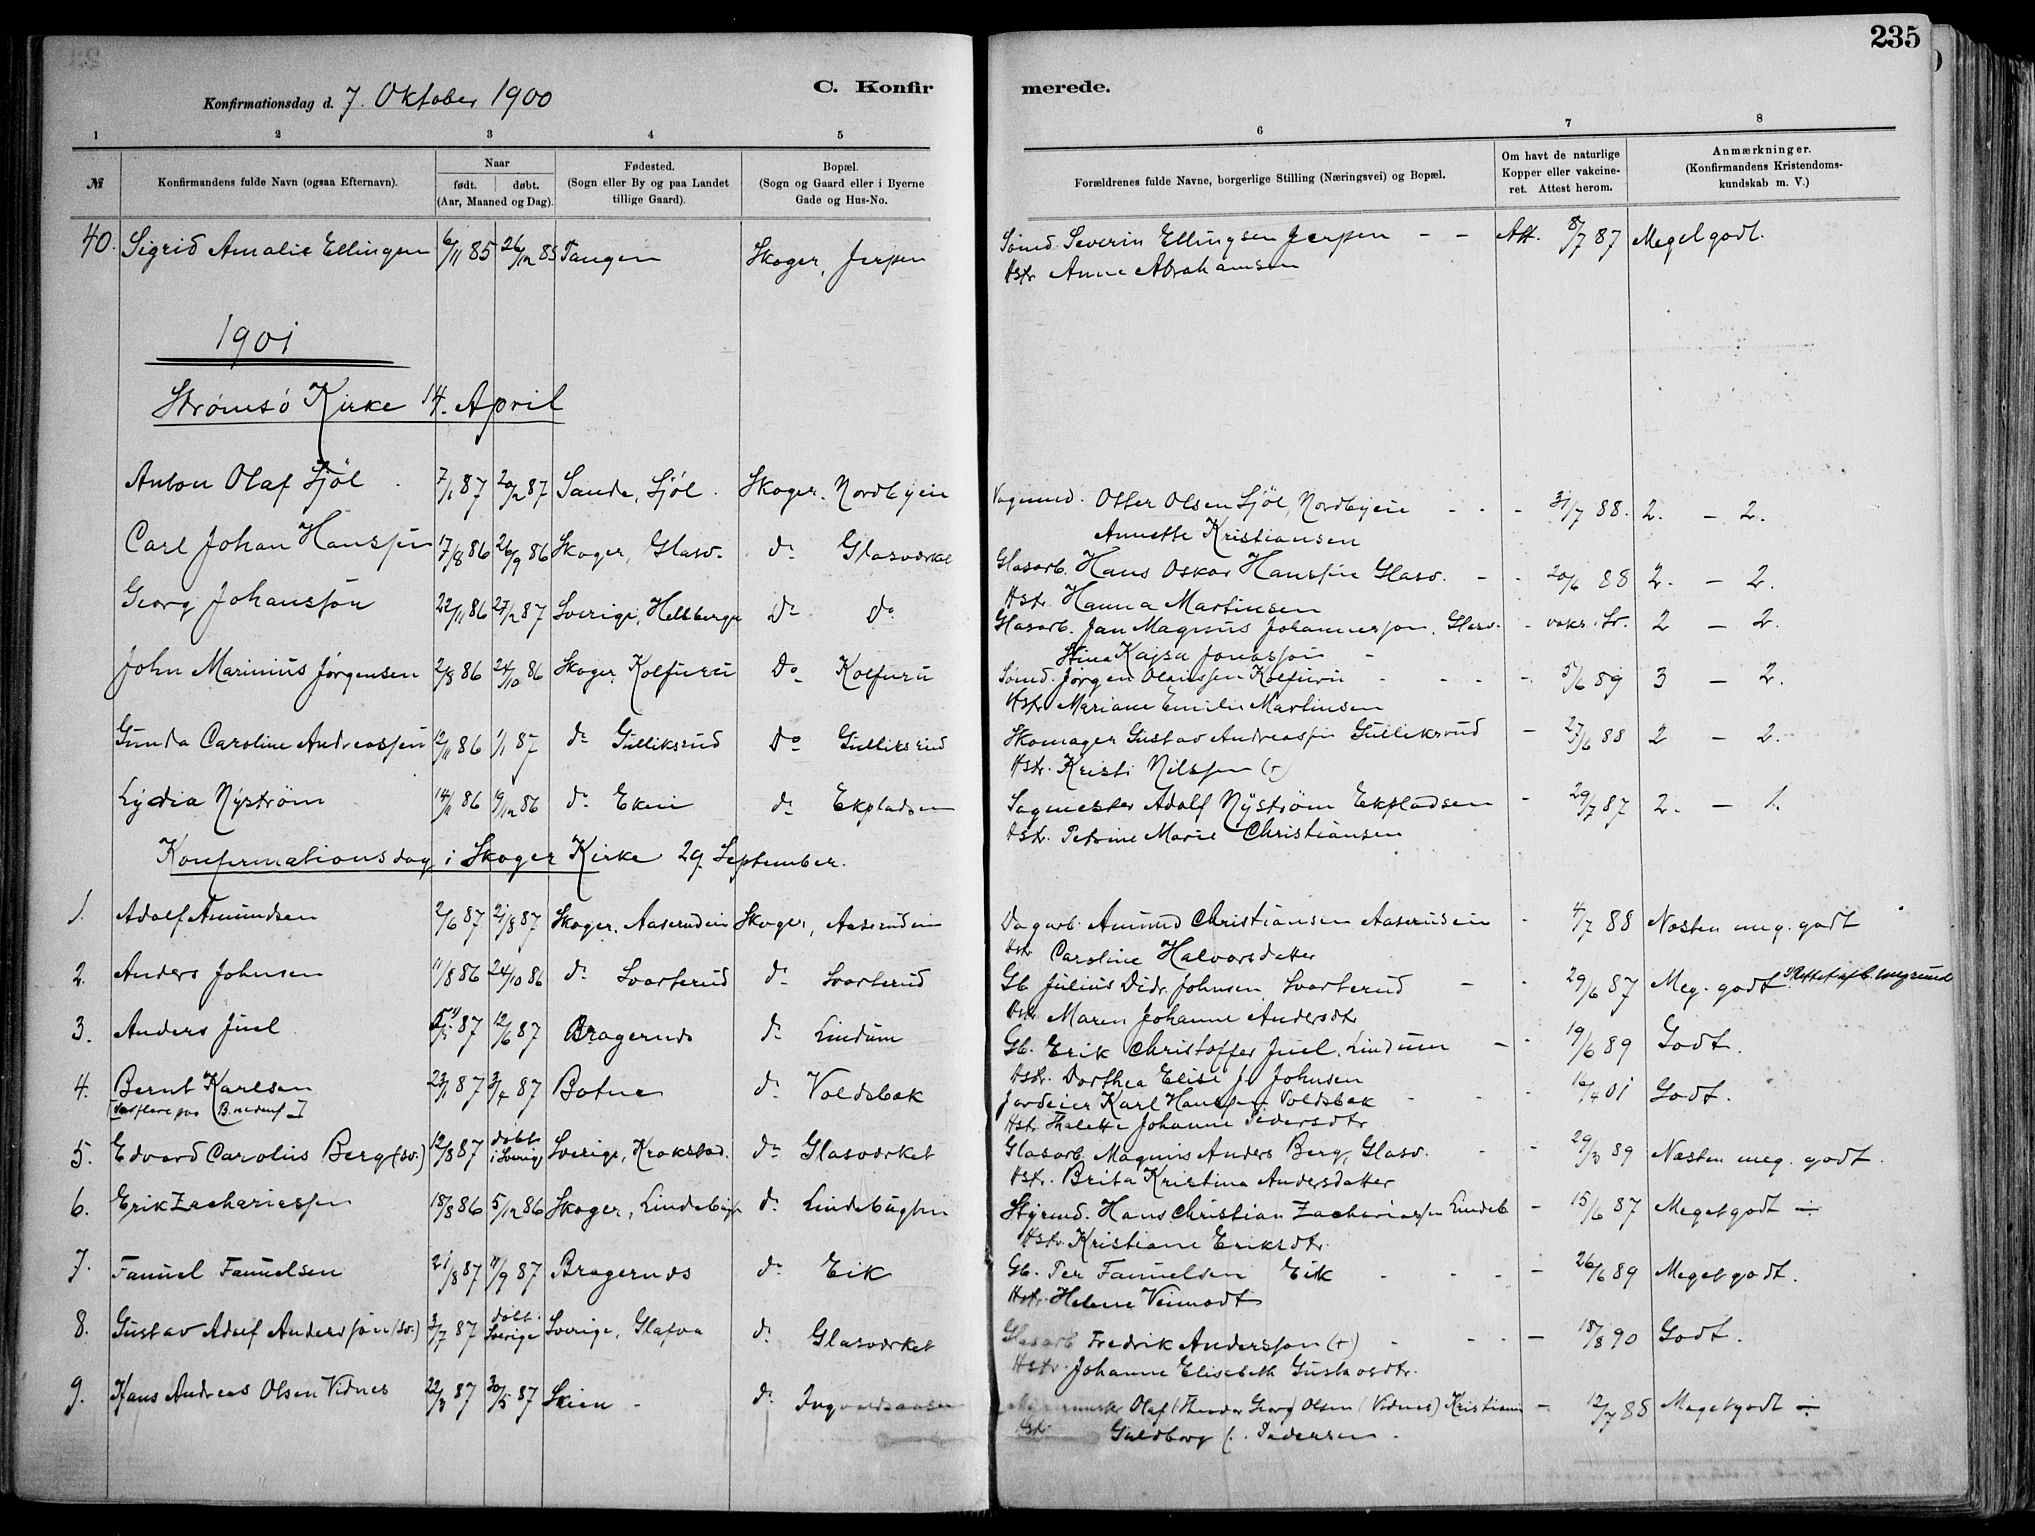 235
Konfirmationsdag d. 7. Oktober 1900 C. Konfirmerede.
1 2 3 4 5 6 7 8
№ Konfirmandens fulde Navn (ogsaa Efternavn). Naar født. døbt. (Aar, Maaned og Dag). Fødested. (Sogn eller By og paa Landet tillige Gaard). Bopæl. (Sogn og Gaard eller i Byerne Gade og Hus-No. Forældrenes fulde Navne, borgerlige Stilling (Næringsvei) og Bopæl. Om havt de naturlige Kopper eller vakcineret. Attest herom. Anmærkninger. (Konfirmandens Kristendomskundskab m. V.)
40. Sigrid Amalie Ellingsen 6/11 85 26/12 85 Tangen Skoger, Jerpen Sømd. Severin Ellingsen Jerpen - - Att. 8/7 87 Meget godt.
Hstr. Anne Abrahamsen
1901
Strømsö Kirke 14. April
Anton Olaf Sjöl 7/1 87 20/2 87 Sande, Sjöl. Skoger. Nordbyeie Vognmd. Otter Olsen Sjöl, Nordbyeie - - - 31/7 88. 2. - 2.
Annette Kristiansen
Carl Johan Hanssen 17/8 86 26/9 86 Skoger, Glasv. do Glasværket Glasarb. Hans Oskar Hanssen Glasv. - - 20/6 88 2. - 2.
Hstr. Hanna Martinsen
Georg Johansson 22/11 86 27/2 87 Sverige, Hellberga Do do Glasarb. Jan Magnus Johannesson, Glasv. - vakc. Sv. 2 - 2.
Stina Kajsa Jonasson
John Marinius Jørgensen 2/8 86 24/10 86 Skoger, Kolfuru Do Kolfuru Sømd. Jørgen Olaissen Kolfuru - - - - 5/6 89 3 - 2.
Hstr. Mariane Emilie Martinsen
Gunda Caroline Andreassen 12/11 86 1/1 87 do Gulliksrud Do Gulliksrud Skomager Gustav Andreassen Gulliksrud - 27/6 88 2 - 2.
Hstr. Kristi Nilssen (+)
Lydia Nyström 14/11 86 19/12 86 do Ekeie do Ekpladsen Sagmester Adolf Nyström Ekpladsen - 29/7 87 2. - 1.
Hstr. Petrine Marie Christiansen
Konfirmationsdag i Skoger Kirke 29 September.
1. Adolf Amundsen 2/6 87 21/8 87 Skoger. Aaserudeie Skoger, Aaserudeie Dagarb. Amund Christiansen Aaserudeie - 4/7 88 Næsten meg. godt
Hstr Caroline Halvorsdatter
2. Anders Johnsen 11/8 86 24/10 86 do Svarterud do Svarterud Gb. Julius Didr. Johnsen Svarterud - - 29/6 87 Meg. godt
Hstr. Maren Johanne Andersdtr
3. Anders Juel 87 12/6 87 Bragernæs do Lindum Gb. Erik Christoffer Juel, Lindum - - 19/6 89 Godt.
Hstr. Dorthea Elise Johnsen
4. Bernt Karlsen 23/1 87 3/4 87 Botne do Voldsbæk Jordeier Karl Hanssen Voldsbæk - - - 16/4 01 Godt.
Hstr. Thalette Johanne Pedersdtr
5. Edvard Carolius Berg (sv.) 12/8 87 døbt i Sverige Sverige, Krokstad. do Glasværket Glasarb. Magnus Anders Berg, Glasv. - - 29/3 89 Næsten meg. godt.
Hstr. Brita Kristina Andersdatter
6. Erik Zachariassen 18/8 86 5/12 86 Skoger, Lindebugt do Lindebugten Styrmd. Hans Christian Zachariassen Lindeb - 15/6 87 Meget godt ÷
Hstr. Kristiane Eriksdtr.
7. Fanuel Fanuelsen 21/8 87 11/9 87 Bragernæs do Eik Gb. Per Fanuelsen Eik - - - - 26/6 89 Meget godt.
Hstr. Helene Veimodt
8. Gustav Adolf Andersson (sv.) 3/7 87 døbt. Sverige Sverige, Glafva do Glasværket Glasarb Fredrik Andersson (+) - - - 18/8 90 Godt.
Hstr. Johanne Elisabeth Gustavsdtr.
9. Hans Andreas Olsen Vidnes 22/3 87 30/5 87 Skien - do Olaf (Theodor Georg) Olsen (Vidnes) - 12/7 88 Meget godt ÷
Hstr Guldborg Pedersen.